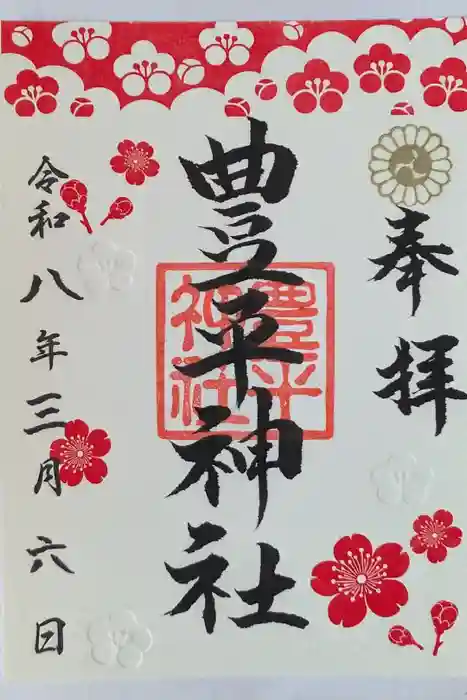 奉拝
豊平神社
豊平神社
令和八年三月六日